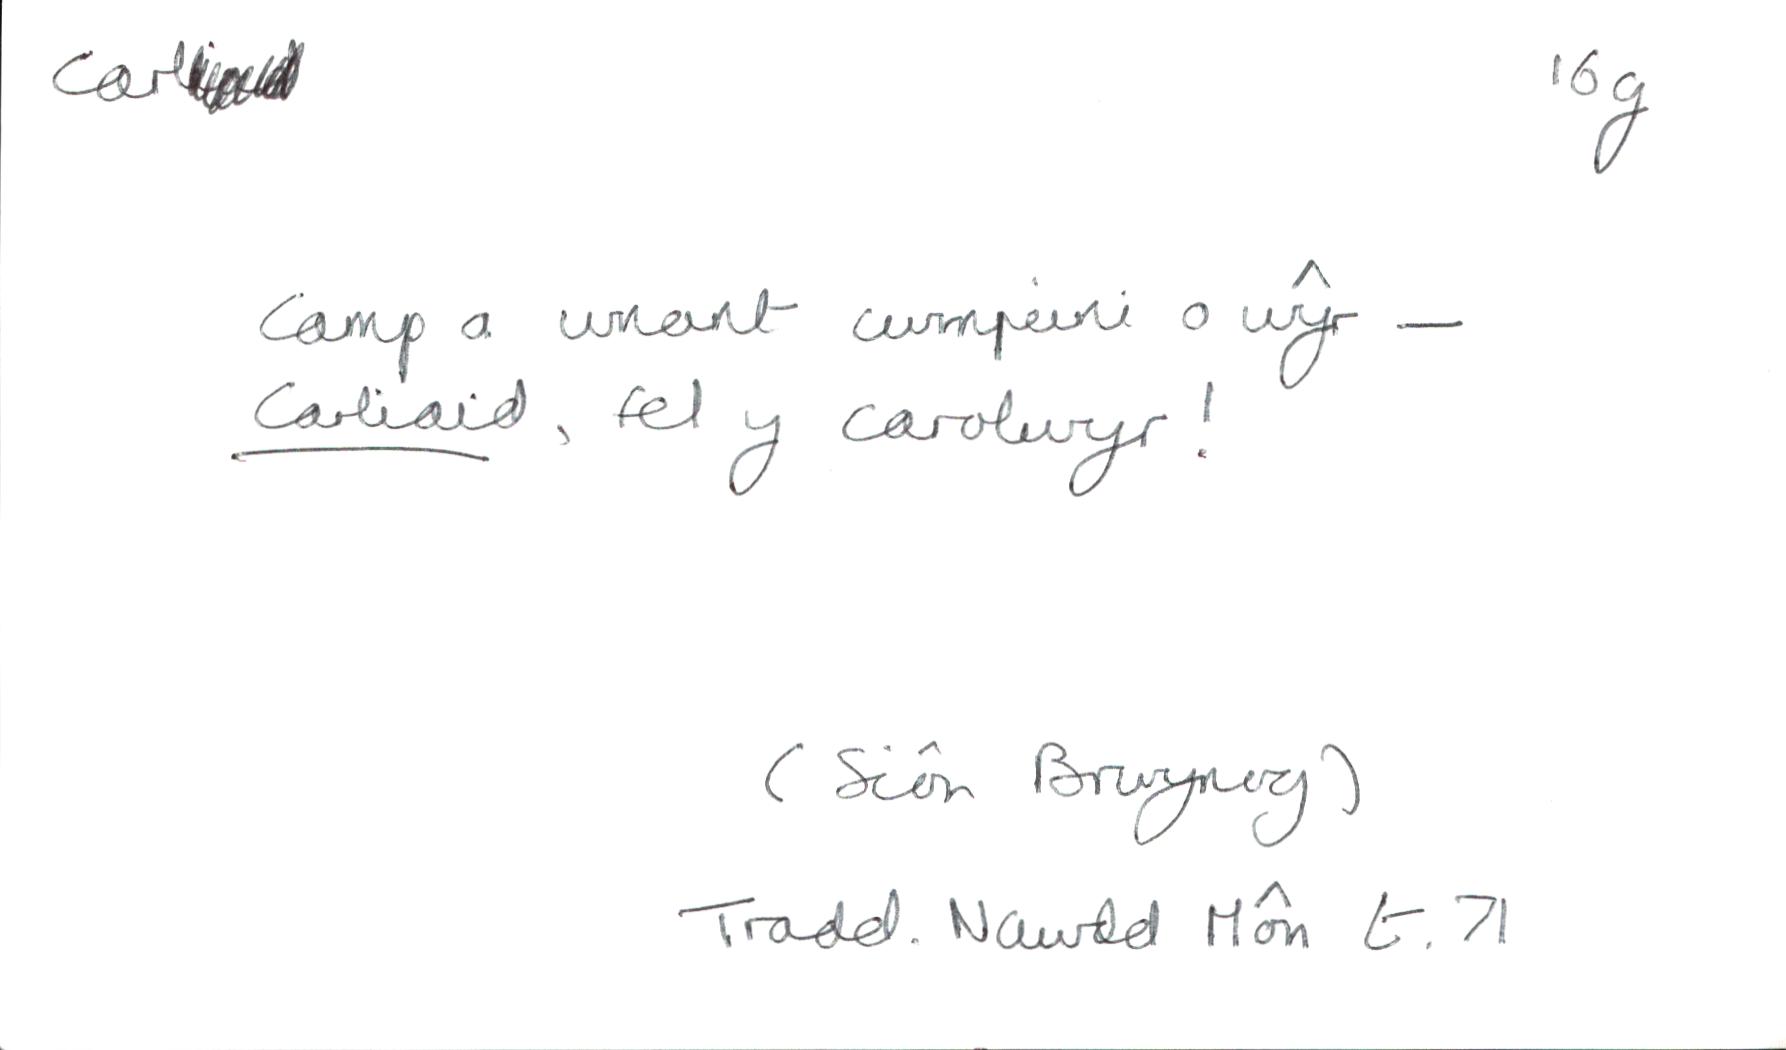 Carl
16g
Camp a wnant cwmpeini o wŷr —
Carliaid, fel y carolwyr!
(Siôn Brwynog)
Tradd. Nawdd Môn t. 71